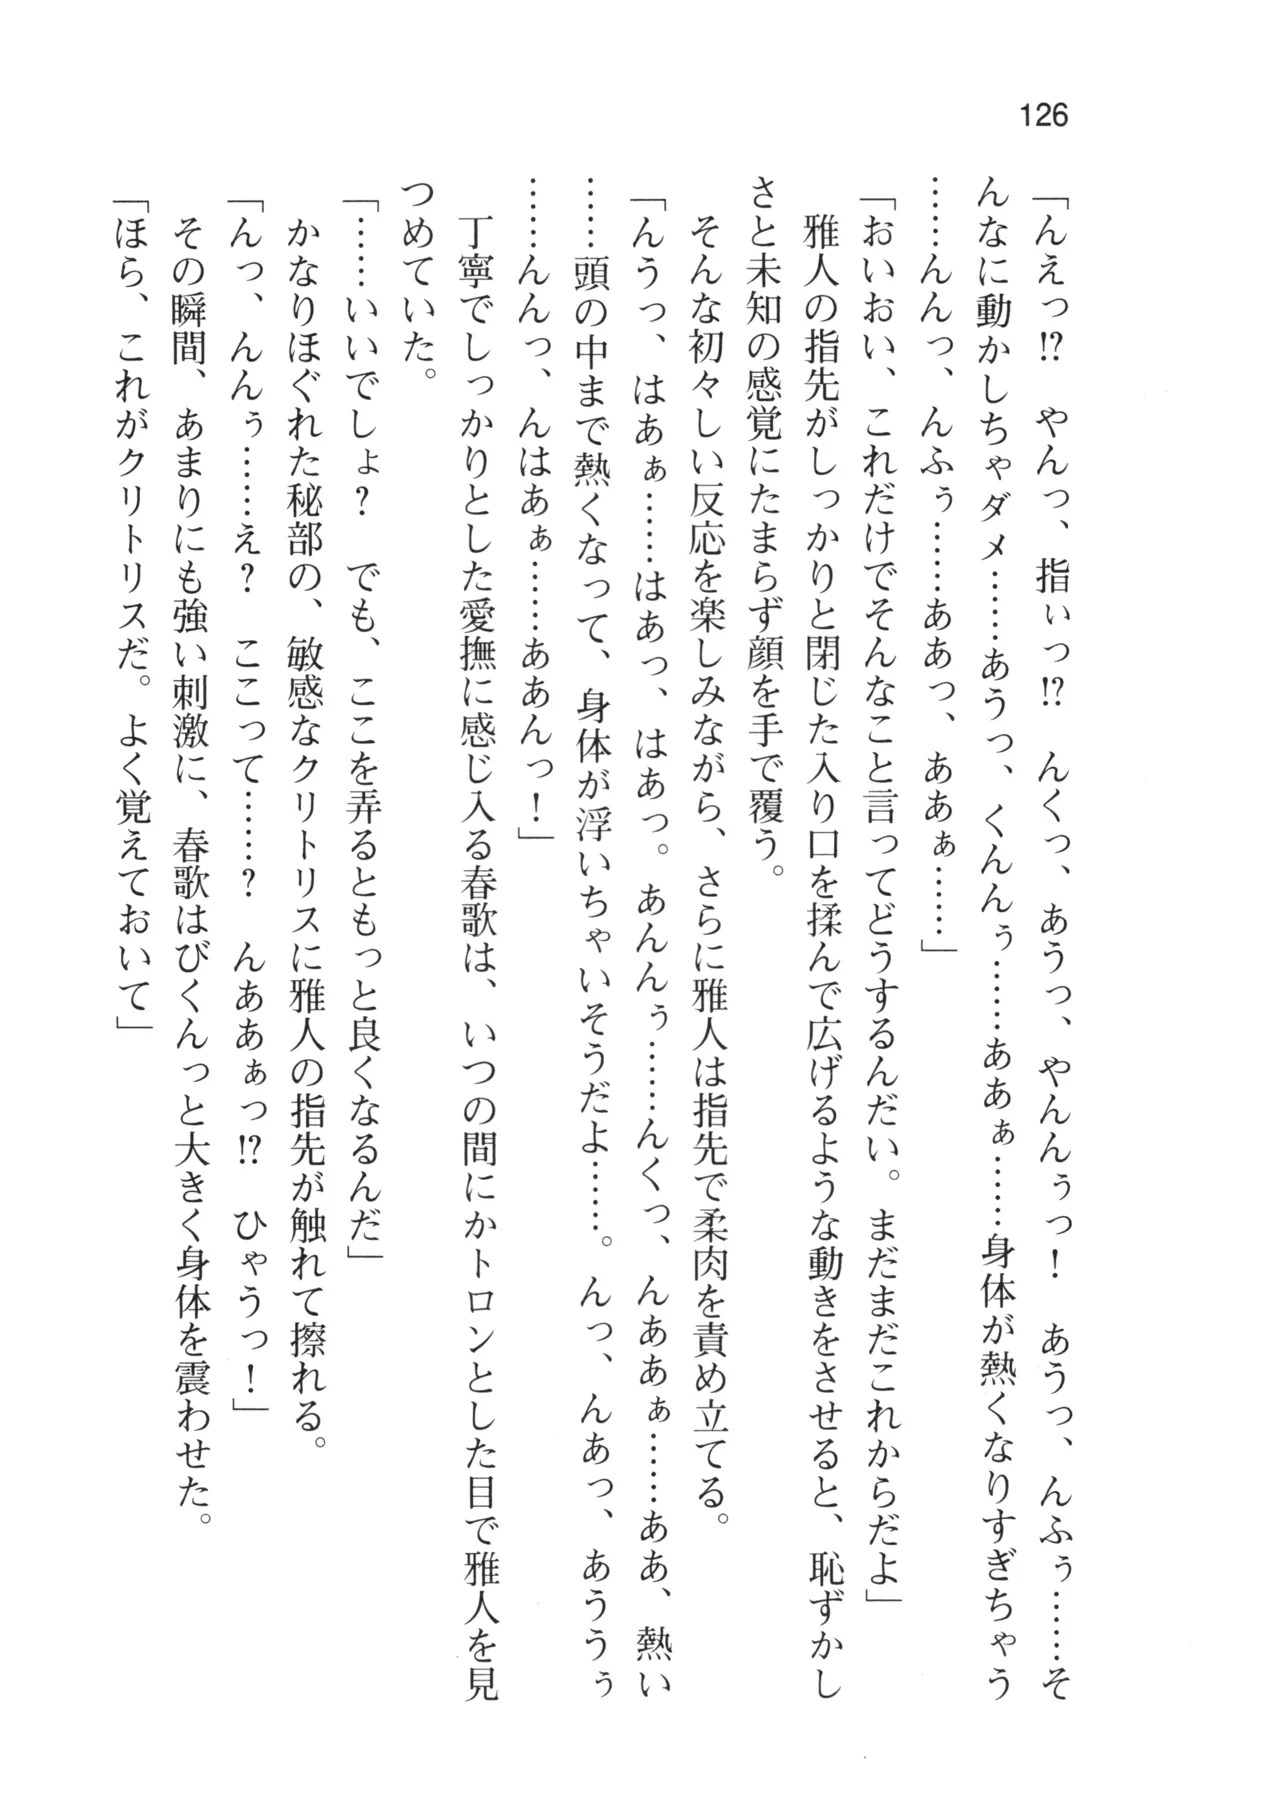 126
「んえっ!?　やんっ、指ぃっ!?　んくっ、あうっ、やんんぅっ！　あうっ、んふぅ……そ
んなに動かしちゃダメ……あうっ、くんんぅ……ああぁ……身体が熱くなりすぎちゃう
……んんっ、んふぅ……ああっ、ああぁ……」
「おいおい、これだけでそんなこと言ってどうするんだい。まだまだこれからだよ」
　雅人の指先がしっかりと閉じた入り口を揉んで広げるような動きをさせると、恥ずかし
さと未知の感覚にたまらず顔を手で覆う。
　そんな初々しい反応を楽しみながら、さらに雅人は指先で柔肉を責め立てる。
「んうっ、はあぁ……はあっ、はあっ。あんんぅ……んくっ、んああぁ……ああ、熱い
……頭の中まで熱くなって、身体が浮いちゃいそうだよ……。んっ、んあっ、あううぅ
……んんっ、んはあぁ……ああんっ！」
　丁寧でしっかりとした愛撫に感じ入る春歌は、いつの間にかトロンとした目で雅人を見
つめていた。
「……いいでしょ？　でも、ここを弄るともっと良くなるんだ」
　かなりほぐれた秘部の、敏感なクリトリスに雅人の指先が触れて擦れる。
「んっ、んんぅ……え？　ここって……？　んああぁっ!?　ひゃうっ！」
　その瞬間、あまりにも強い刺激に、春歌はびくんっと大きく身体を震わせた。
「ほら、これがクリトリスだ。よく覚えておいて」